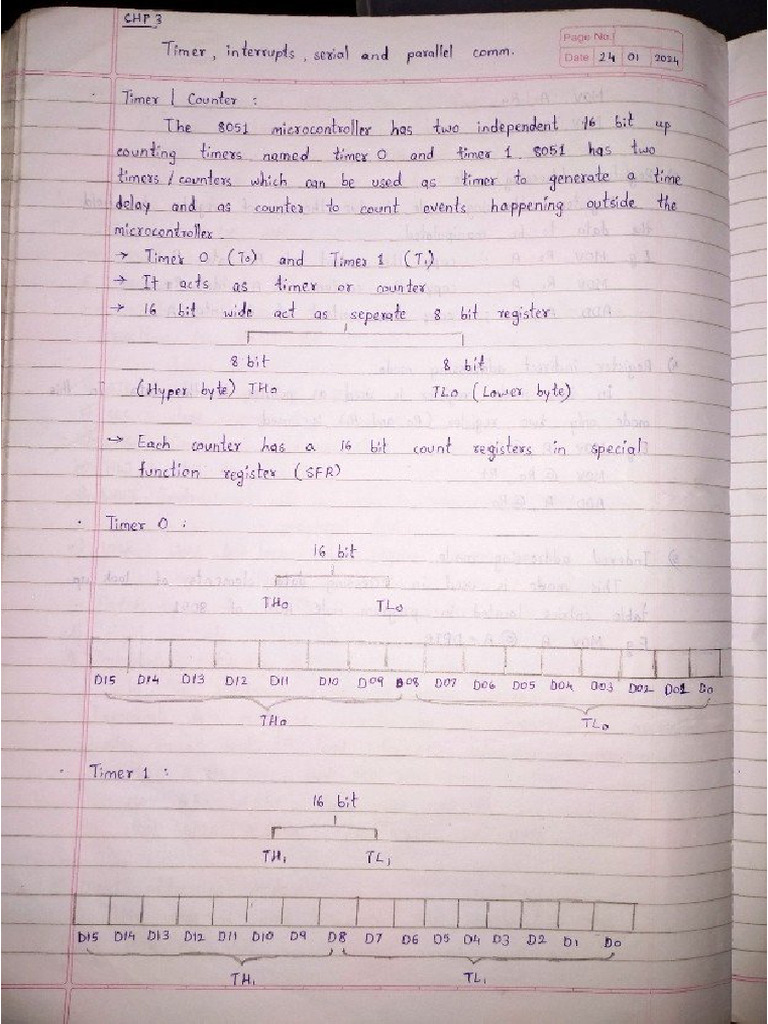 CHP 3
Timer, interrupts, serial and parallel comm.
Page No.
Date 24 01 2024
Timer | Counter :
The 8051 microcontroller has two independent 16 bit up
counting timers named timer 0 and timer 1 8051 has two
timers / counters which can be used as timer to generate a time
delay and as counter to count events happening outside the
microcontroller
→ Timer 0 (T0) and Timer 1 (T1)
→ It acts as timer or counter
→ 16 bit wide act as seperate 8 bit register
8 bit 8 bit
(Hyper byte) TH0 TL0 (Lower byte)
→ Each counter has a 16 bit count registers in special
function register (SFR)
· Timer 0 :
16 bit
TH0 TL0
D15 D14 D13 D12 D11 D10 D09 D08 D07 D06 D05 D04 D03 D02 D01 D0
TH0 TL0
· Timer 1 :
16 bit
TH1 TL1
D15 D14 D13 D12 D11 D10 D9 D8 D7 D6 D5 D4 D3 D2 D1 D0
TH1 TL1